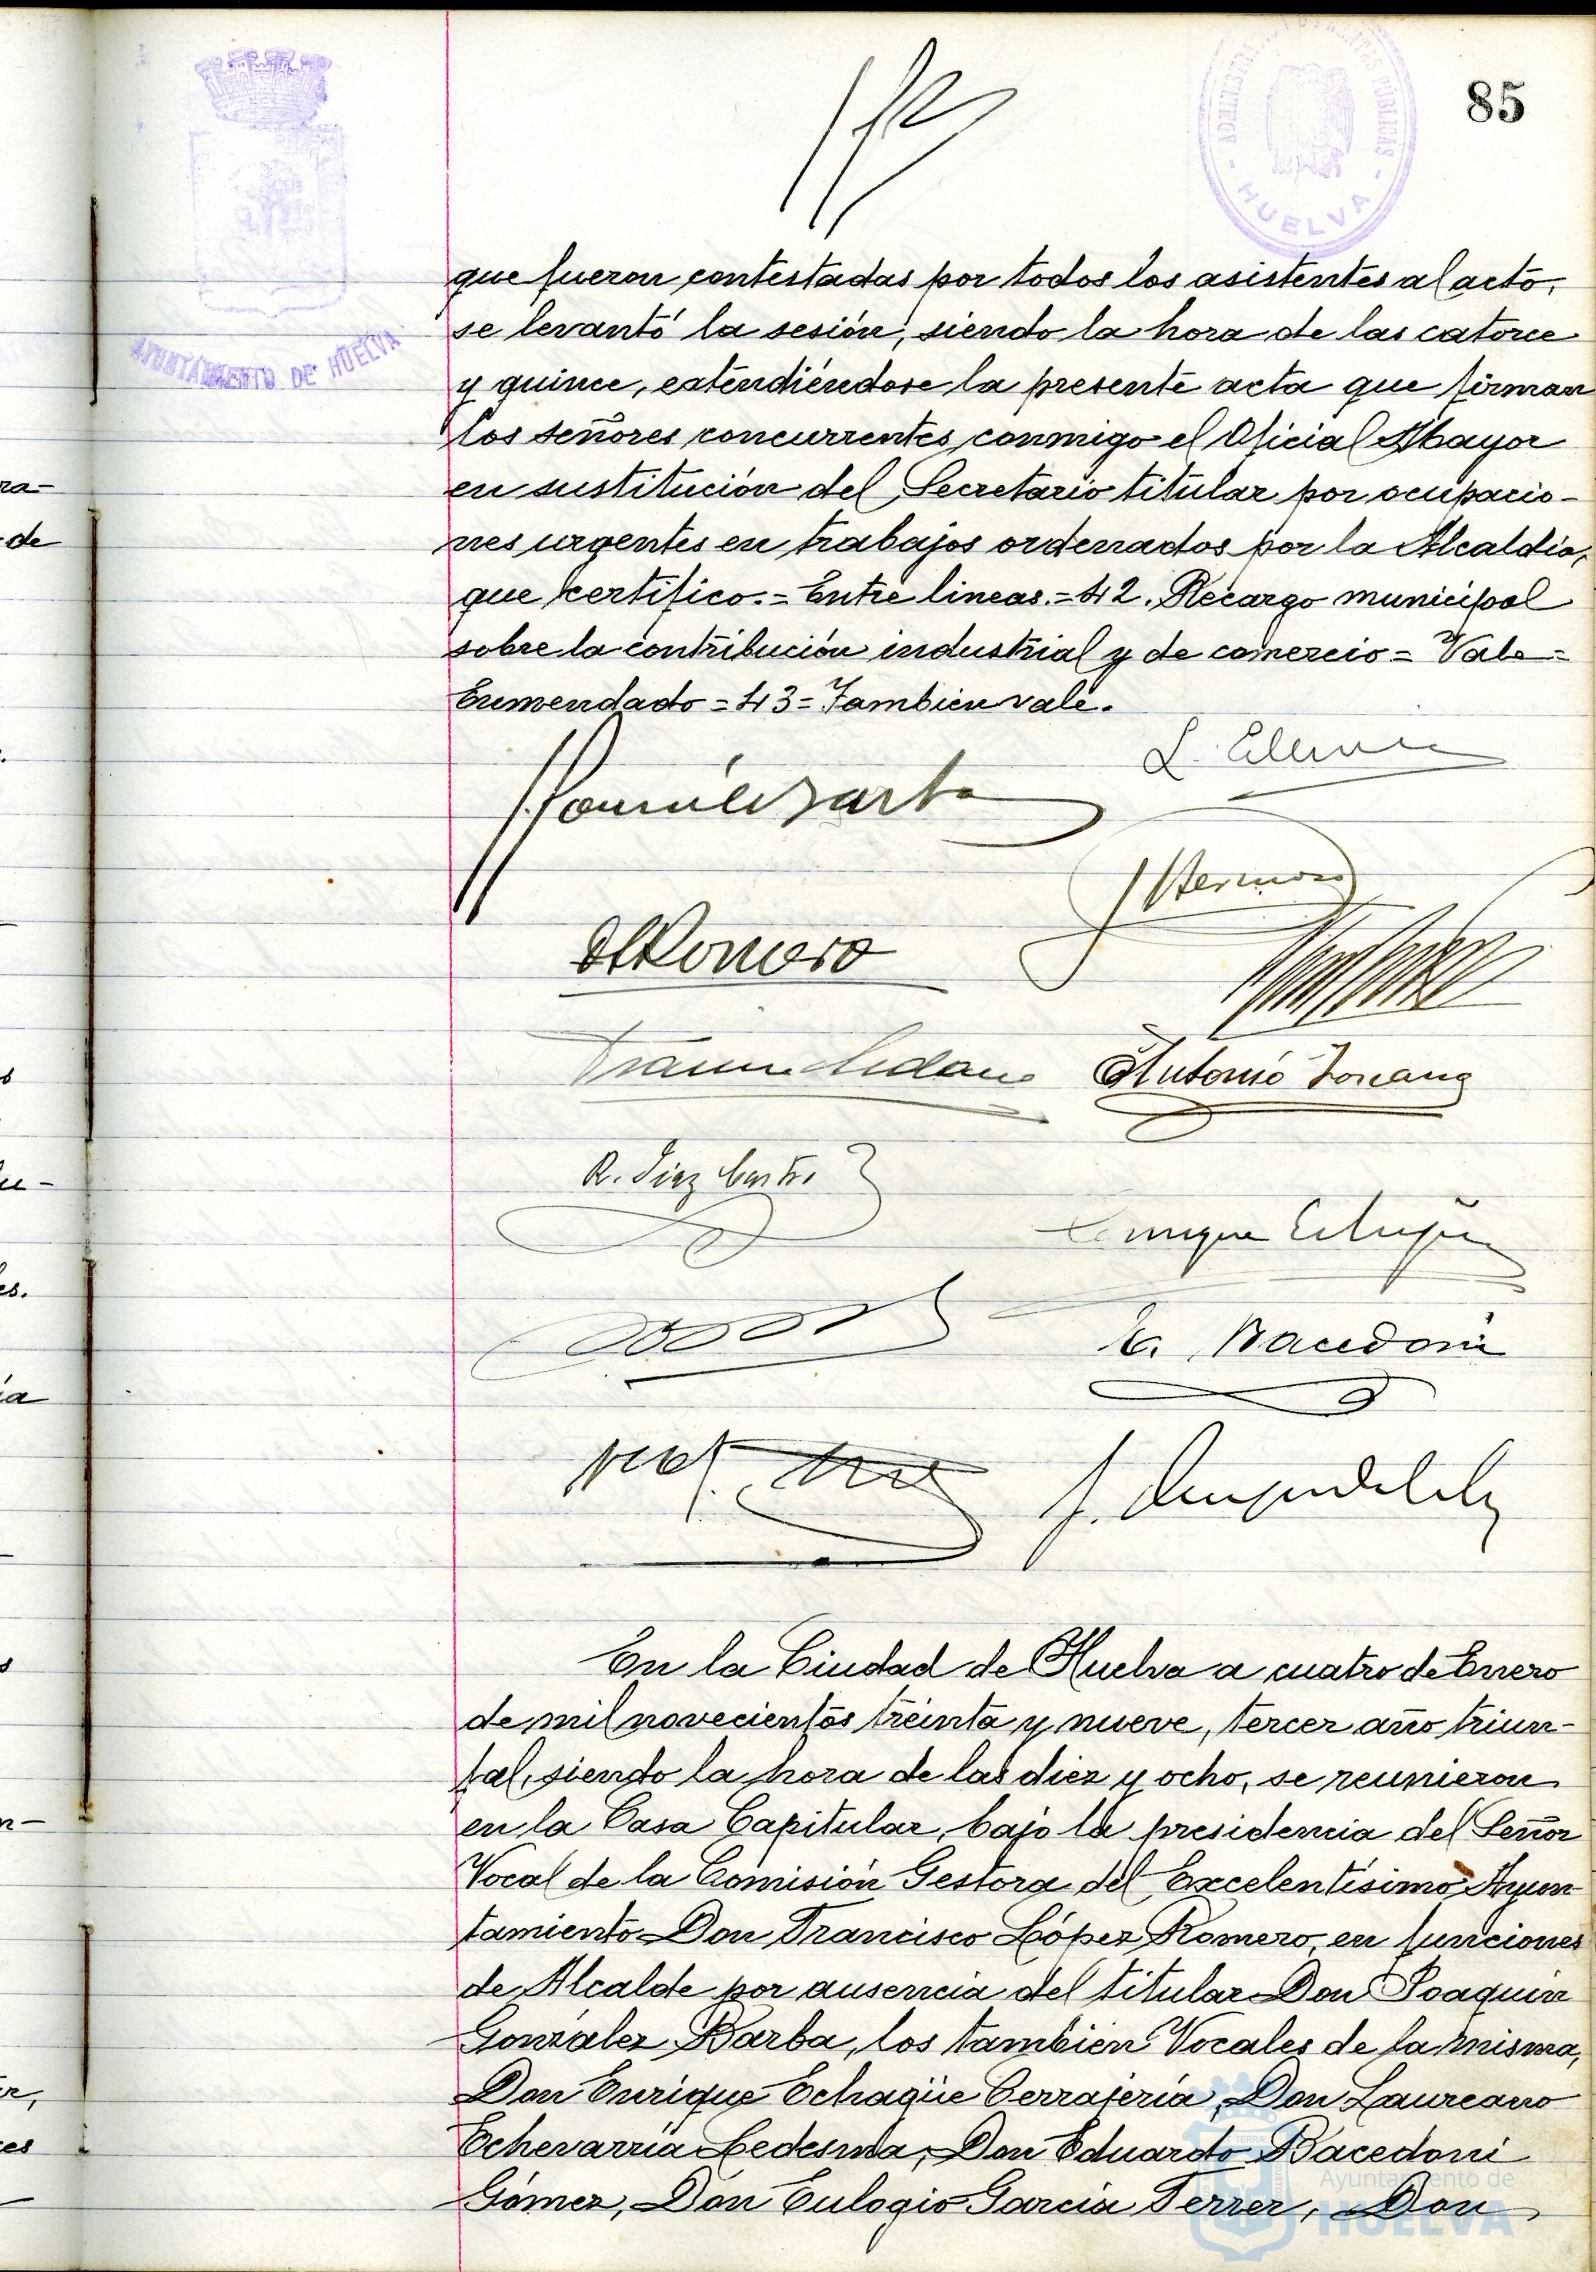 85
ADMINISTRACION
PUBLICAS
- HUELVA -
AYUNTAMIENTO DE HUELVA
que fueron contestadas por todos los asistentes al acto,
se levantó la sesión, siendo la hora de las catorce
y quince, extendiéndose la presente acta que firman
los señores concurrentes conmigo el Oficial Mayor
en sustitución del Secretario titular por ocupacio-
nes urgentes en trabajos ordenados por la Alcaldía,
que certifico.= Entre lineas.= 42. Recargo municipal
sobre la contribución industrial y de comercio = Vale =
Enmendado = 43 = Tambien vale.
J Hermoso
Romero
Antonio
R. Diaz
Enrique
E. Bacedoni
En la Ciudad de Huelva a cuatro de Enero
de mil novecientos treinta y nueve, tercer año triun-
fal, siendo la hora de las diez y ocho, se reunieron
en la Casa Capitular, bajo la presidencia del Señor
Vocal de la Comisión Gestora del Excelentísimo Ayun-
tamiento Don Francisco López Romero, en funciones
de Alcalde por ausencia del titular Don Joaquin
González Barba, los tambien Vocales de la misma,
Don Enrique Echagüe Cerrajería, Don Laureano
Echevarría Ledesma, Don Eduardo Bacedoni
Gómez, Don Eulogio García Ferrer, Don
Ayuntamiento de
HUELVA
ra-
de
es.
ia